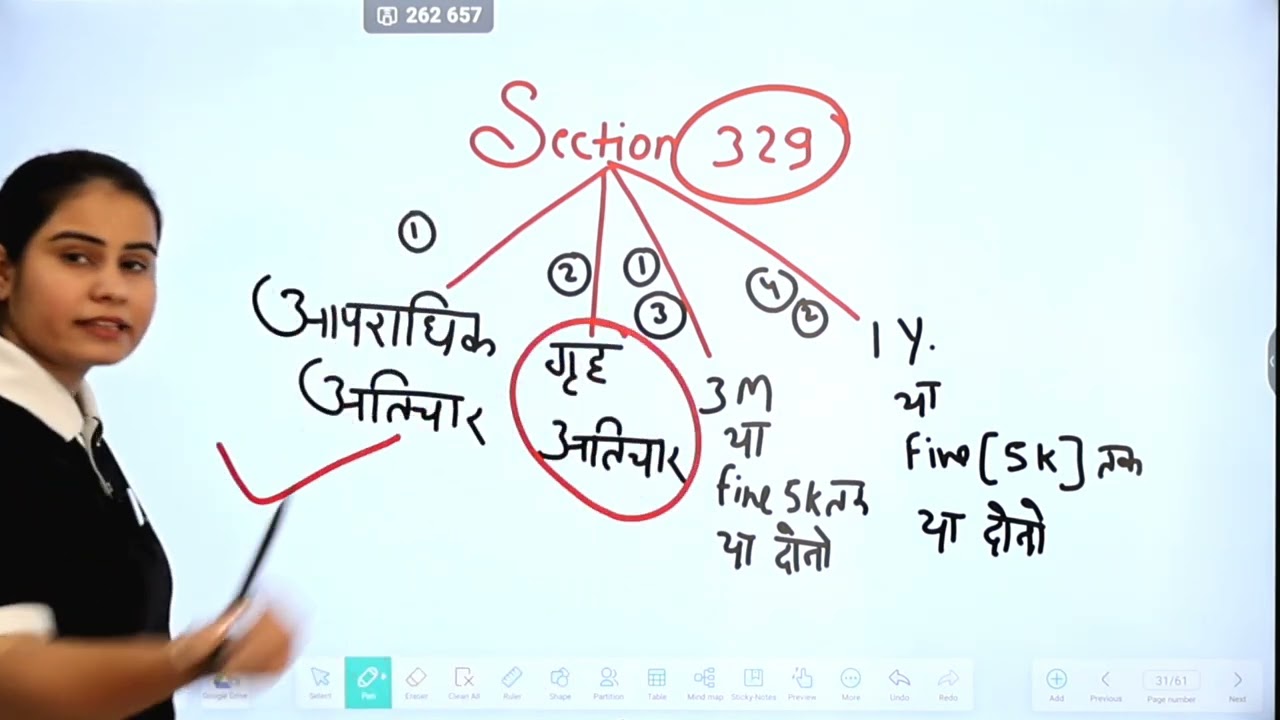 262 657
Section 329
①
② ① ③
④ ②
आपराधिक
अतिचार
गृह
अतिचार
3 M
या
fine 5k तक
या दोनो
1 Y.
या
fine [5K] तक
या दोनो
Google Drive Select Pen Eraser Clean All Ruler Shape Partition Table Mind map Sticky Notes Preview More Undo Redo Add Previous 31/61 Page number Next